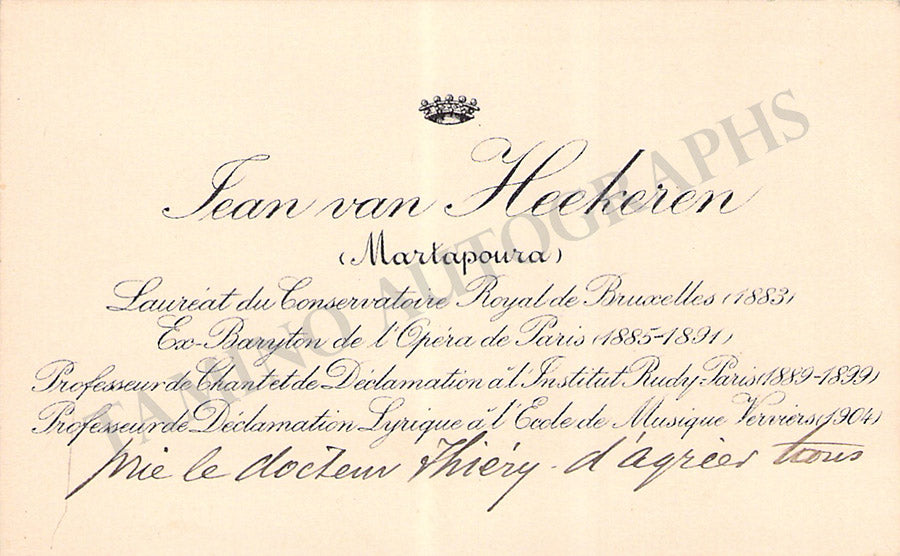 Jean van Heekeren
(Martapoura)
Lauréat du Conservatoire Royal de Bruxelles (1883)
Ex-Baryton de l'Opéra de Paris (1885-1891)
Professeur de Chant et de Déclamation à l'Institut Rudy-Paris (1889-1899)
Professeur de Déclamation Lyrique à l'Ecole de Musique Verviers (1904)
prie le docteur Thiéry d'agréer tous
TAMINO AUTOGRAPHS